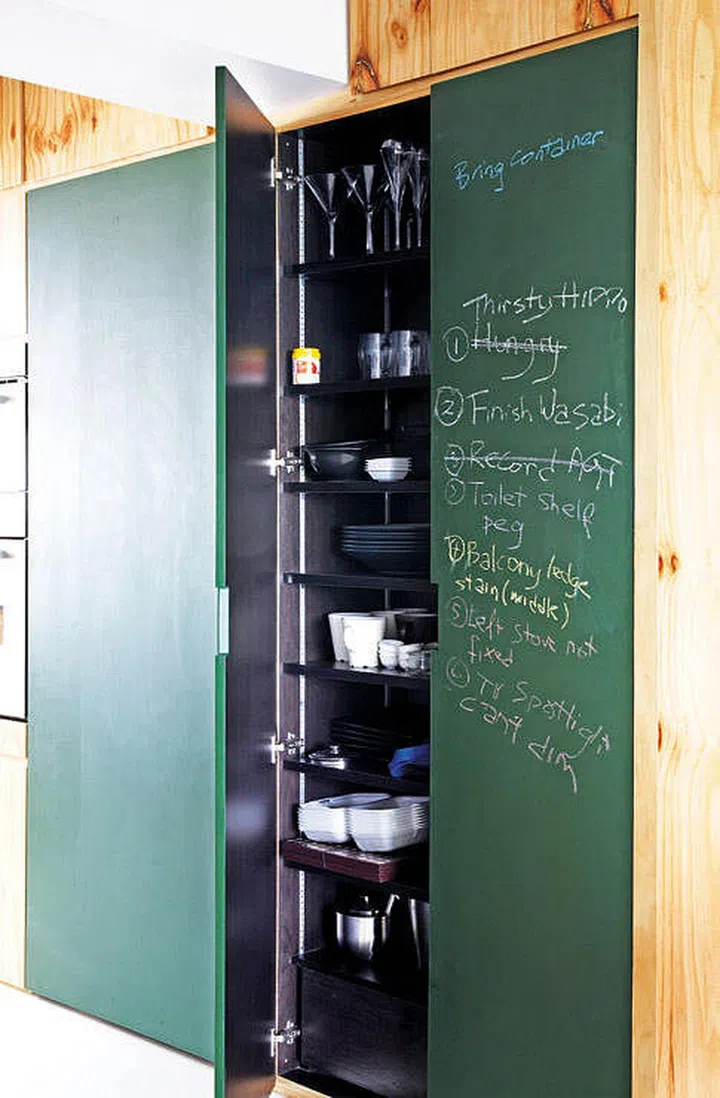 Bring container
Thirsty Hippo
① Hungry
② Finish Wasabi
③ Record
③ Toilet shelf
peg
④ Balcony ledge
stain (middle)
⑤ Left stove not
fixed
⑥ TV Spotlight
can't dim